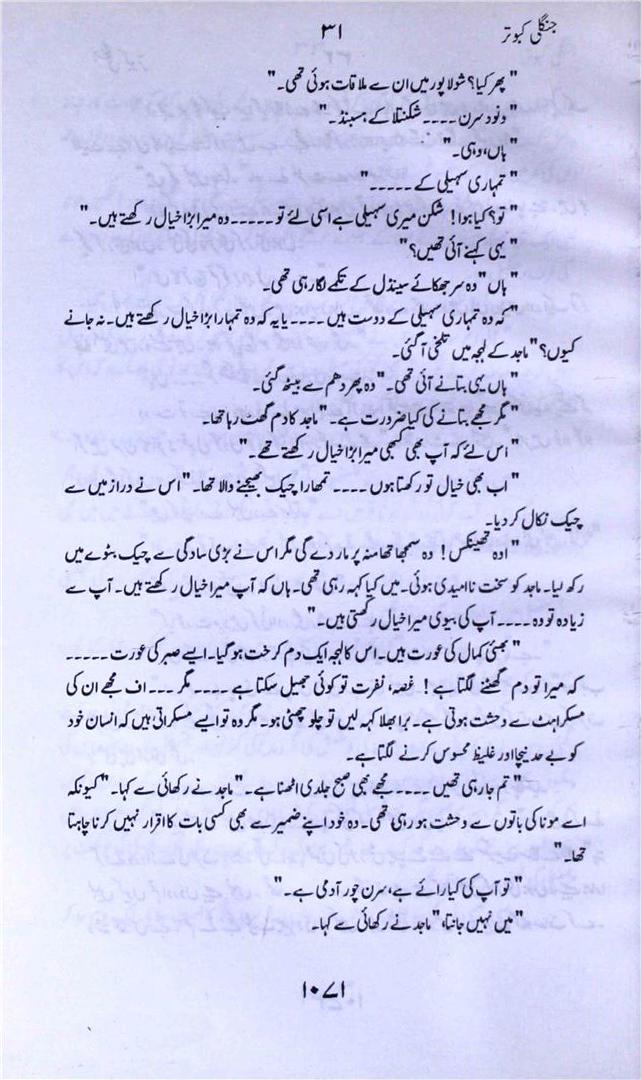 جنگلی کبوتر
۳۱
" پھر کیا؟ شولا پور میں ان سے ملاقات ہوئی تھی۔"
" ونود سرن ۔۔۔۔ شکنتلا کے ہسبنڈ۔"
" ہاں، وہی۔"
" تمہاری سہیلی کے ۔۔۔۔۔"
" تو؟ کیا ہوا! شکن میری سہیلی ہے اسی لئے تو ۔۔۔۔۔ وہ میرا بڑا خیال رکھتے ہیں۔"
" یہی کہنے آئی تھیں؟"
" ہاں" وہ سر جھکائے سینڈل کے تکمے لگا رہی تھی۔
" کہ وہ تمہاری سہیلی کے دوست ہیں ۔۔۔۔ یا یہ کہ وہ تمہارا بڑا خیال رکھتے ہیں۔ نہ جانے
کیوں؟" ماجد کے لہجہ میں تلخی آ گئی۔
" ہاں یہی بتانے آئی تھی۔" وہ پھر دھم سے بیٹھ گئی۔
" مگر مجھے بتانے کی کیا ضرورت ہے۔" ماجد کا دم گھٹ رہا تھا۔
" اس لئے کہ آپ بھی کبھی میرا بڑا خیال رکھتے تھے۔"
" اب بھی خیال تو رکھتا ہوں ۔۔۔۔ تمھارا چیک بھیجنے والا تھا۔" اس نے دراز میں سے
چیک نکال کر دیا۔
" اوہ تھینکس! وہ سمجھا تھا منہ پر مار دے گی مگر اس نے بڑی سادگی سے چیک بٹوے میں
رکھ لیا۔ ماجد کو سخت نا امیدی ہوئی۔ میں کیا کہہ رہی تھی۔ ہاں کہ آپ میرا خیال رکھتے ہیں۔ آپ سے
زیادہ تو وہ ۔۔۔۔ آپ کی بیوی میرا خیال رکھتی ہیں۔"
" بھئی کمال کی عورت ہیں۔ اس کا لہجہ ایک دم کرخت ہو گیا۔ ایسے صبر کی عورت ۔۔۔۔۔
کہ میرا تو دم گھٹنے لگتا ہے! غصہ، نفرت تو کوئی جھیل سکتا ہے ۔۔۔۔ مگر ۔۔۔ اف مجھے ان کی
مسکراہٹ سے وحشت ہوتی ہے۔ برا بھلا کہہ لیں تو چلو چھٹی ہو۔ مگر وہ تو ایسے مسکراتی ہیں کہ انسان خود
کو بے حد نیچا اور غلیظ محسوس کرنے لگتا ہے۔
" تم جا رہی تھیں ۔۔۔۔ مجھے بھی صبح جلدی اٹھنا ہے۔" ماجد نے رکھائی سے کہا۔" کیونکہ
اسے مونا کی باتوں سے وحشت ہو رہی تھی۔ وہ خود اپنے ضمیر سے بھی کسی بات کا اقرار نہیں کرنا چاہتا
تھا۔"
" تو آپ کی کیا رائے ہے، سرن چور آدمی ہے۔"
" میں نہیں جانتا،" ماجد نے رکھائی سے کہا۔
۱۰۷۱